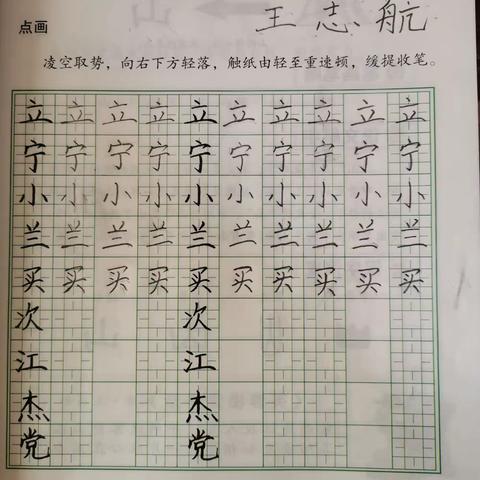 点画
王志航
凌空取势，向右下方轻落，触纸由轻至重速顿，缓提收笔。
立立立立立立立立立立
宁宁宁宁宁宁宁宁宁宁
小小小小小小小小小小
兰兰兰兰兰兰兰兰兰兰
买买买买买买买买买买
次次
江江
杰杰
党党